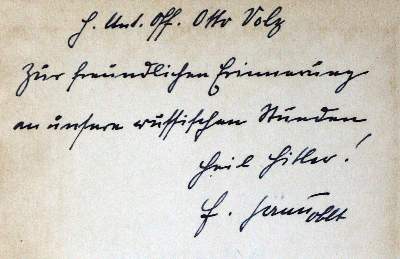 H. Unt. Off. Otto Volz
Zur freundlichen Erinnerung
an unsere russischen Stunden
Heil Hitler!
oblt